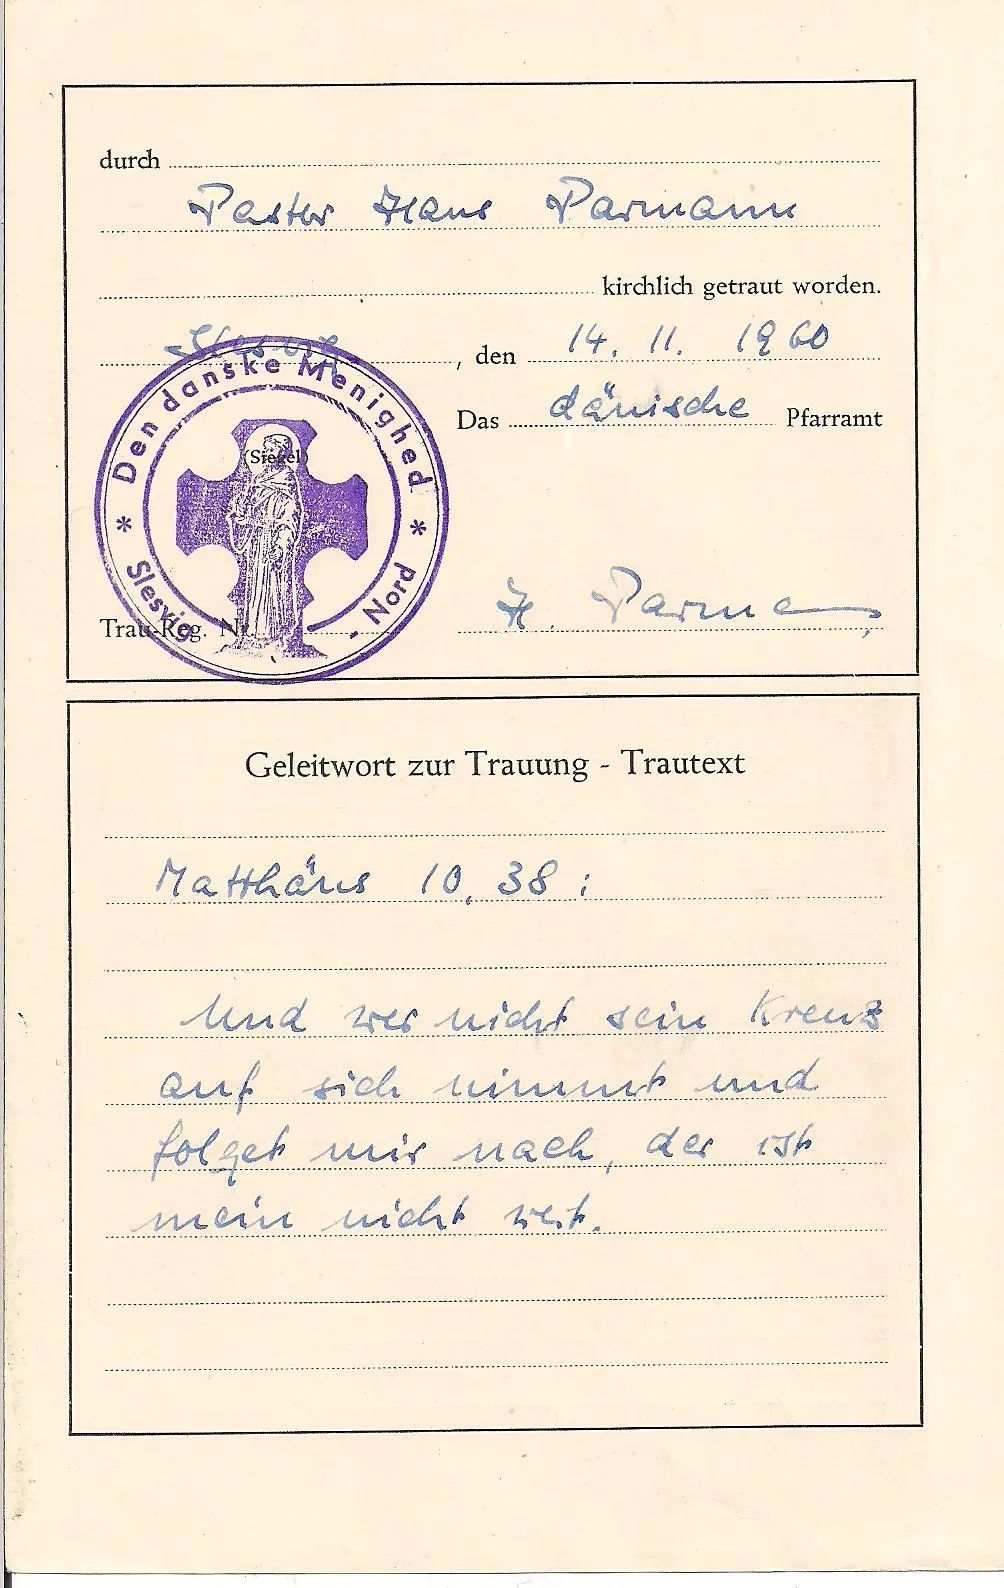 durch
Pastor Hans Parmann
kirchlich getraut worden.
, den 14. 11. 1960
Das dänische Pfarramt
Den danske Menighed
(Siegel)
* *
Slesvig - Nord
Trau-Reg. Nr.
H. Parmann
Geleitwort zur Trauung - Trautext
Matthäus 10, 38:
Und wer nicht sein Kreuz
auf sich nimmt und
folget mir nach, der ist
mein nicht wert.